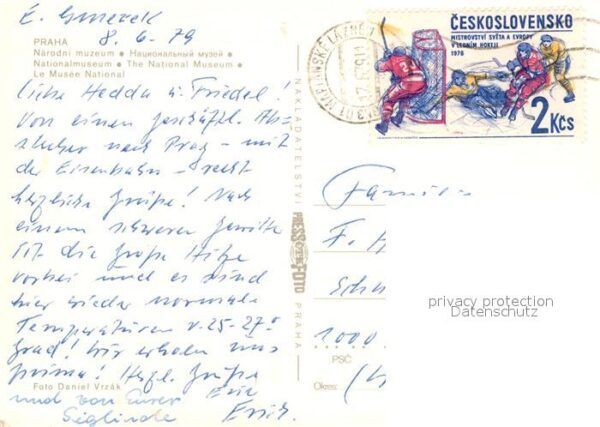 8. 6. 79
PRAHA
Národní muzeum • Национальный музей •
Nationalmuseum • The National Museum •
Le Musée National
Liebe Hedda u. Friedel!
Von einem geschäftl. Ab-
stecher nach Prag – mit
der Eisenbahn – recht
herzliche Grüße! Nach
einem schweren Gewitter
ist die große Hitze
vorbei und es sind
hier wieder normale
Temperaturen v. 25-27°
Grad! Wir erholen uns
prima! Herzl. Grüße
Erich
Foto Daniel Vrzák
und von Eurer
Sieglinde
Erich.
NAKLADATELSTVÍ
PRESSFOTO
PRAHA
ČESKOSLOVENSKO
MISTROVSTVÍ SVĚTA A EVROPY
V LEDNÍM HOKEJI
1978
2 Kčs
Familie
F. H
Sch
1000
PSČ
Okres:
privacy protection
Datenschutz